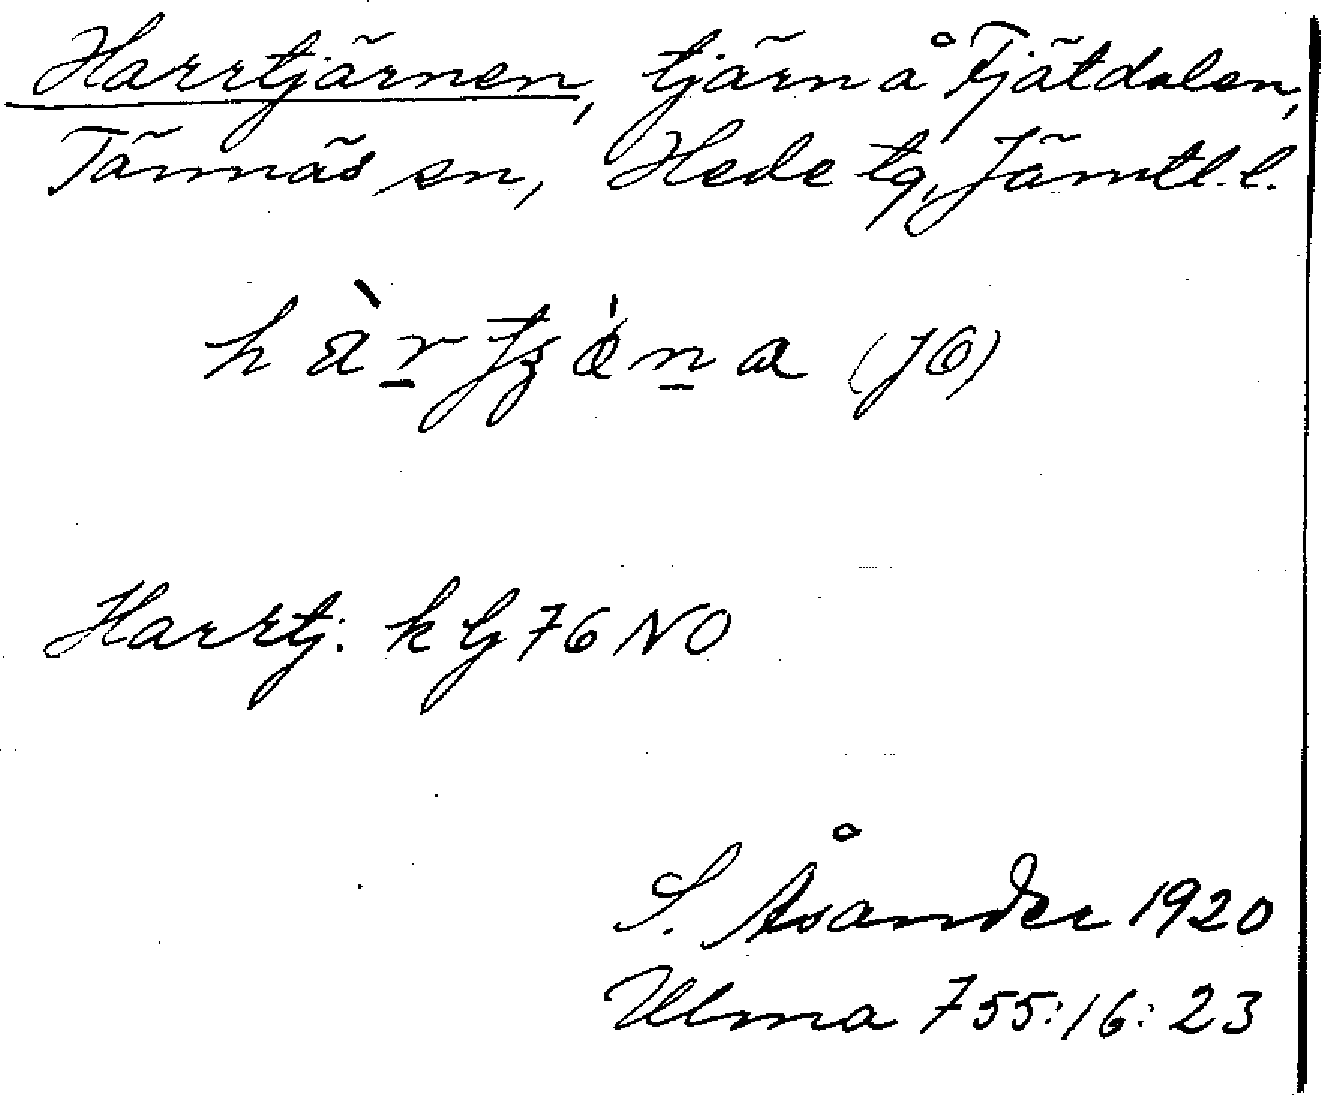 Harrtjärnen, tjärn å Fjätdalen,
Tännäs sn, Hede tg, Jämtl. l.
(JÖ)
Harrtj. k bl 76 NO
S. Åsander 1920
Ulma 755:16:23